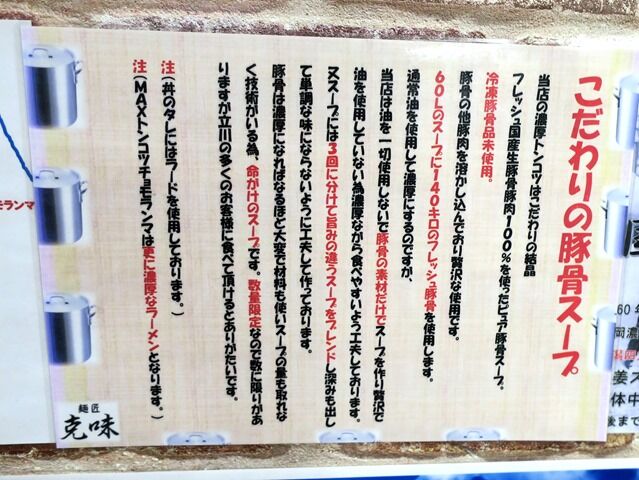 こだわりの豚骨スープ
当店の濃厚トンコツはこだわりの結晶
フレッシュ国産生豚骨豚肉100%を使ったピュア豚骨スープ。
冷凍豚骨品未使用。
豚骨の他豚肉を溶かし込んでおり贅沢な使用です。
60Lのスープに140キロのフレッシュ豚骨を使用します。
通常油を使用して濃厚にするのですが、
当店は油を一切使用しないで豚骨の素材だけでスープを作り贅沢で
油を使用していない為濃厚ながら食べやすいよう工夫しております。
又スープには3回に分けて旨みの違うスープをブレンドし深みも出し
て単調な味にならないように工夫して作っております。
豚骨は濃厚になればなるほど大変で材料も使いスープの量も取れな
く技術がいる為、命がけのスープです。数量限定なので数に限りがあ
りますが立川の多くのお客様に食べて頂けるとありがたいです。
注(丼のタレにはラードを使用しております。)
注(MAXトンコツチョモランマは更に濃厚なラーメンとなります。)
麺匠
克味
モランマ
60年
岡濃
姜ス
体中
後まで